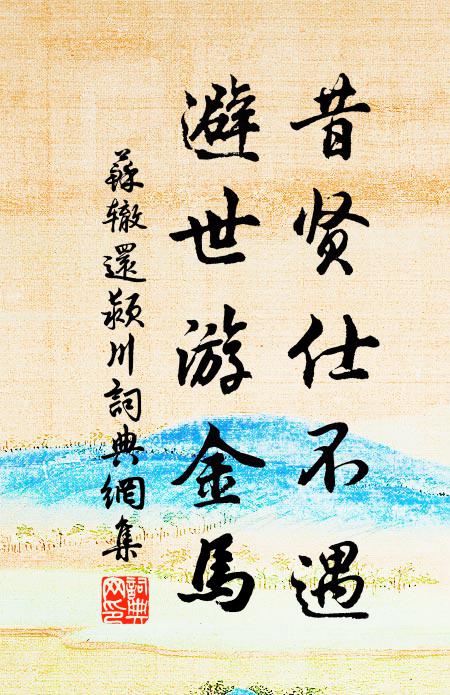 昔贤仕不遇
避世游金馬
蘇辙還颍川詞典網集
詞典
网印